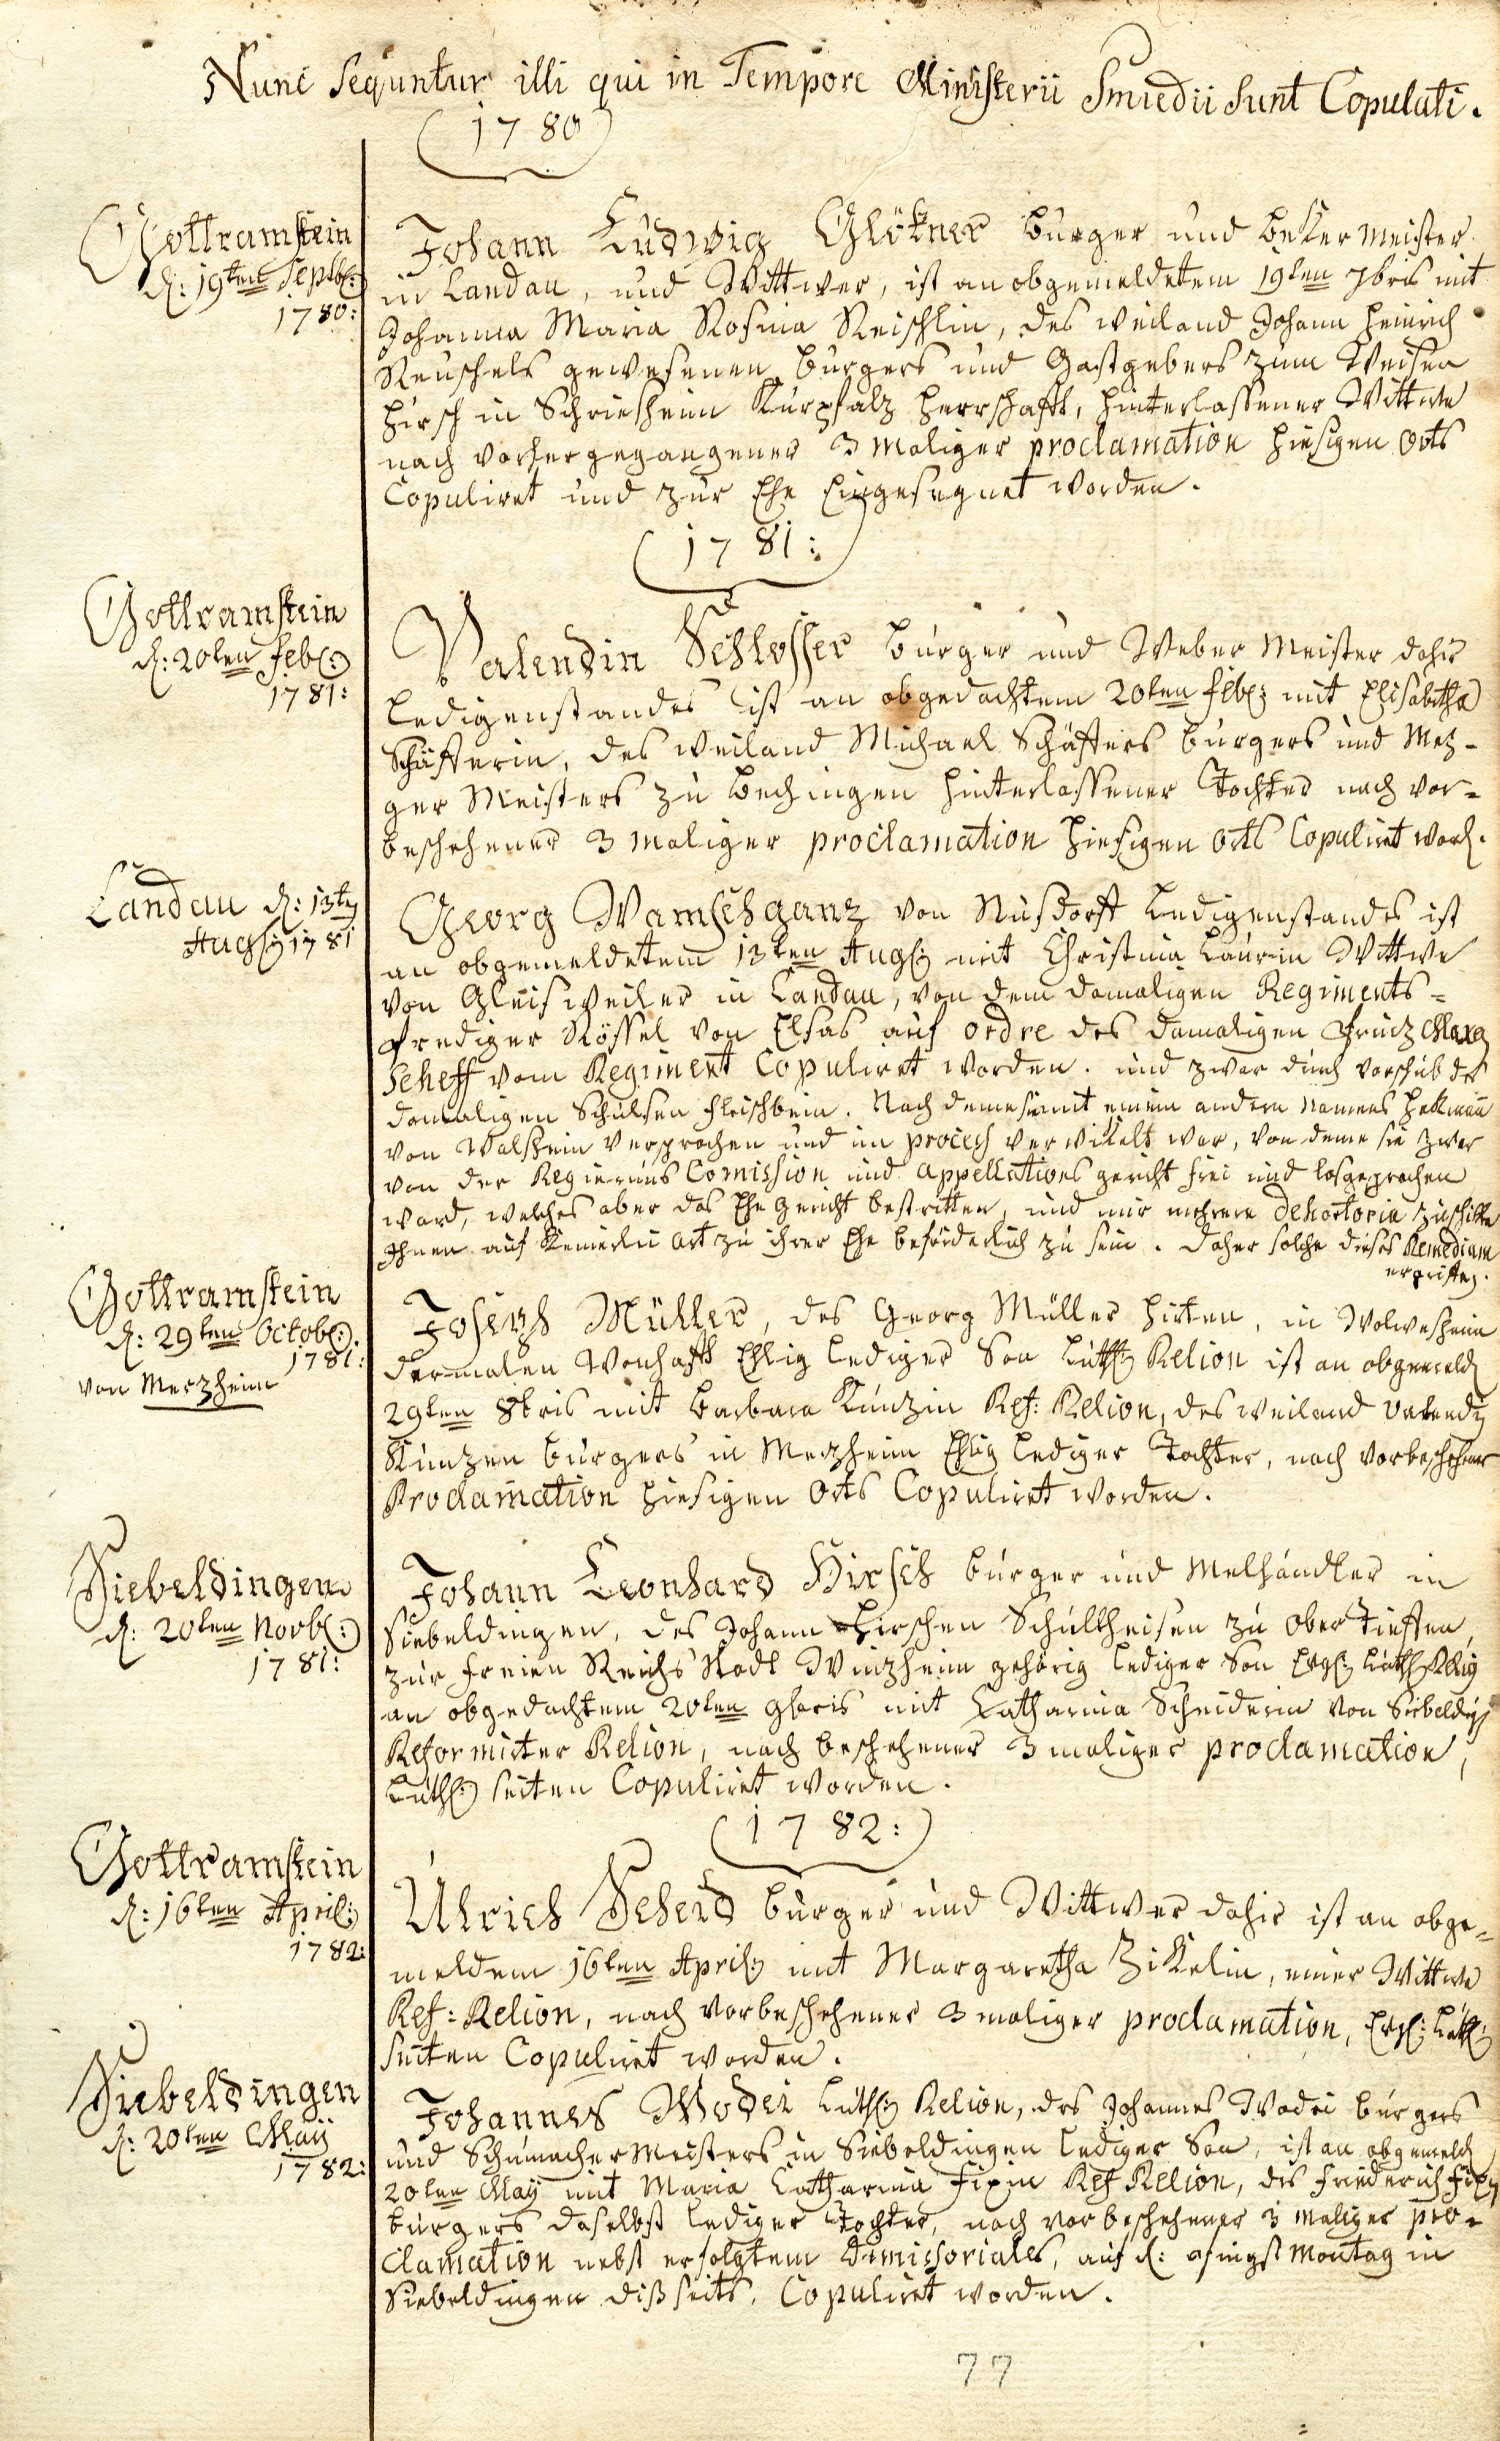 Nunc sequntur illi qui in Tempore Ministerii Smiedii sunt Copulati.
1780
Gottramstein
d: 19ten Septb:
1780:
Johann Ludwig Glökner burger und beker meister
in Landau, und Wittwer, ist an obgemeldetem 19ten 7bris mit
Johanna Maria Rosina Reischlin, des weiland Johann Heinrich
Reuschels gewesenen burgers und Gastgebers zum Weisen
Hirsch in Schriesheim Kurpfalz Herrschafft, hinterlassener Wittwe
nach vorhergegangener 3 maliger proclamation hiesigen Orts
Copuliret und zur Ehe Eingesegnet worden.
1781:
Gottramstein
d: 20ten feb:
1781:
Valendin Schlosser burger und Weber Meister dahir
Ledigenstandes ist an obgedachtem 20ten feb: mit Elisabetha
Schäfferin, des weiland Michael Schäffers burgers und Mez-
ger Meisters zu Bechingen hinterlassener Tochter nach vor-
beschehener 3 maliger proclamation hiesigen Orts Copuliret word.
Landau d: 13ten
Aug: 1781
Georg Wamschganz von Nusdorff Ledigenstandes ist
an obgemeldetem 13ten Aug: mit Christina Laurin Wittwe
von Gleisweiler in Landau, von dem damaligen Regiments-
prediger Rössel von Elsas auf ordre des damaligen Prinz Maxen
Scheff vom Regiment Copuliret worden. und zwar durch vorschub des
damaligen Schulsen Fleischbein. Nach deme sie mit einem andern Namens Hekmann
von Walsheim versprochen und im process verwikelt war, von deme sie zwar
von der Regierungs Comission und appellations gericht frei und losgesprochen
ward, welches aber das Ehe Gericht bestritten, und mir mehrere dehortoria zuschikte
Ihnen auf Keinerlei Art zu ihrer Ehe beförderlich zu sein. Daher solche dieses Remedium
ergriffen.
Gottramstein
d: 29ten Octob:
1781:
von Merzheim
Joseph Müller, des Georg Müller Hirten, in Wolmesheim
dermalen Wonhafft Ehlig lediger Son Luth: Relion ist an obgemeld
29ten 8bris mit Barbara Kunzin Ref: Relion, des weiland Valendin
Kunzen burgers in Merzheim Ehlig lediger Tochter, nach vorbeschehener
Proclamation hiesigen Orts Copuliret worden.
Siebeldingen
d: 20ten Novb:
1781:
Johann Leonhard Hirsch burger und Melhändler in
Siebeldingen, des Johann Hirschen Schultheisen zu Ober Tieffen
zur freien Reichs Stadt Winzheim gehörig lediger Son Evg: Luth Relig
an obgedachtem 20ten 9bris mit Catharina Schneiderin von Siebelding
Reformirter Relion, nach beschehener 3 maliger proclamation,
Luth: seiten Copuliret worden.
1782:
Gottramstein
d: 16ten April:
1782:
Ulrich Scheid burger und Wittwer dahir ist an obge-
meldem 16ten April: mit Margaretha Zikelin, einer Wittwe
Ref: Relion, nach vorbeschehener 3 maliger proclamation, Evg: Luth:
seiten Copuliret worden.
Siebeldingen
d: 20ten May
1782:
Johannes Wodei Luth: Relion, des Johannes Wodei burgers
und Schumacher Meisters in Siebeldingen lediger Son, ist an obgemeld
20ten May mit Maria Catharina Fixin Ref Relion, des Friederich Fixen
burgers daselbst lediger Tochter, nach vorbeschehener 3 maliger pro-
clamation nebst erfolgtem Dimissoriales, auf d: Pfingst Montag in
Siebeldingen disseits, Copuliret worden.
77